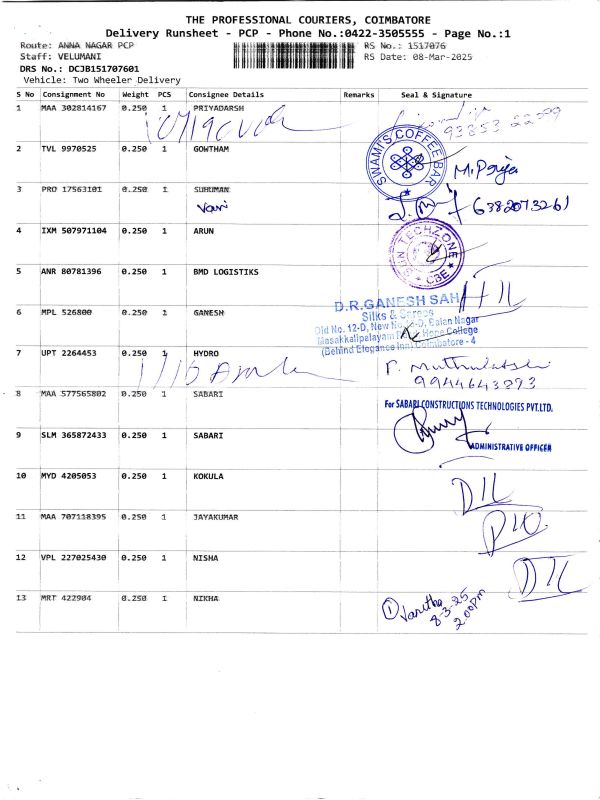 THE PROFESSIONAL COURIERS, COIMBATORE
Delivery Runsheet - PCP - Phone No.:0422-3505555 - Page No.:1
Route: ANNA NAGAR PCP
RS No.: 1517076
Staff: VELUMANI
RS Date: 08-Mar-2025
DRS No.: DCJB151707601
Vehicle: Two Wheeler Delivery
S No Consignment No Weight PCS Consignee Details Remarks Seal & Signature
1 MAA 302814167 0.250 1 PRIYADARSH
93853 22999
2 TVL 9970525 0.250 1 GOWTHAM
SWAMI'S COFFEE BAR
M. Priya
3 PRO 17563101 0.250 1 SUHUMAN
Vani
6382073261
4 IXM 507971104 0.250 1 ARUN
SUN TECHZONE
CBE
5 ANR 80781396 0.250 1 BMD LOGISTIKS
6 MPL 526800 0.250 1 GANESH
D.R.GANESH SAH
Silks & Sarees
Old No. 12-D, New No. -D, Balan Nagar
Masakkalipalayam Hope College
(Behind Elegance Inn) Coimbatore - 4
7 UPT 2264453 0.250 1 HYDRO
P. Muthulatshi
9944643893
8 MAA 577565802 0.250 1 SABARI
For SABARI CONSTRUCTIONS TECHNOLOGIES PVT.LTD.
9 SLM 365872433 0.250 1 SABARI
ADMINISTRATIVE OFFICER
10 MYD 4205053 0.250 1 KOKULA
DIL
11 MAA 707118395 0.250 1 JAYAKUMAR
12 VPL 227025430 0.250 1 NISHA
DIL
13 MRT 422904 0.250 1 NIKHA
1 Vanitha
8-3-25
2.00pm